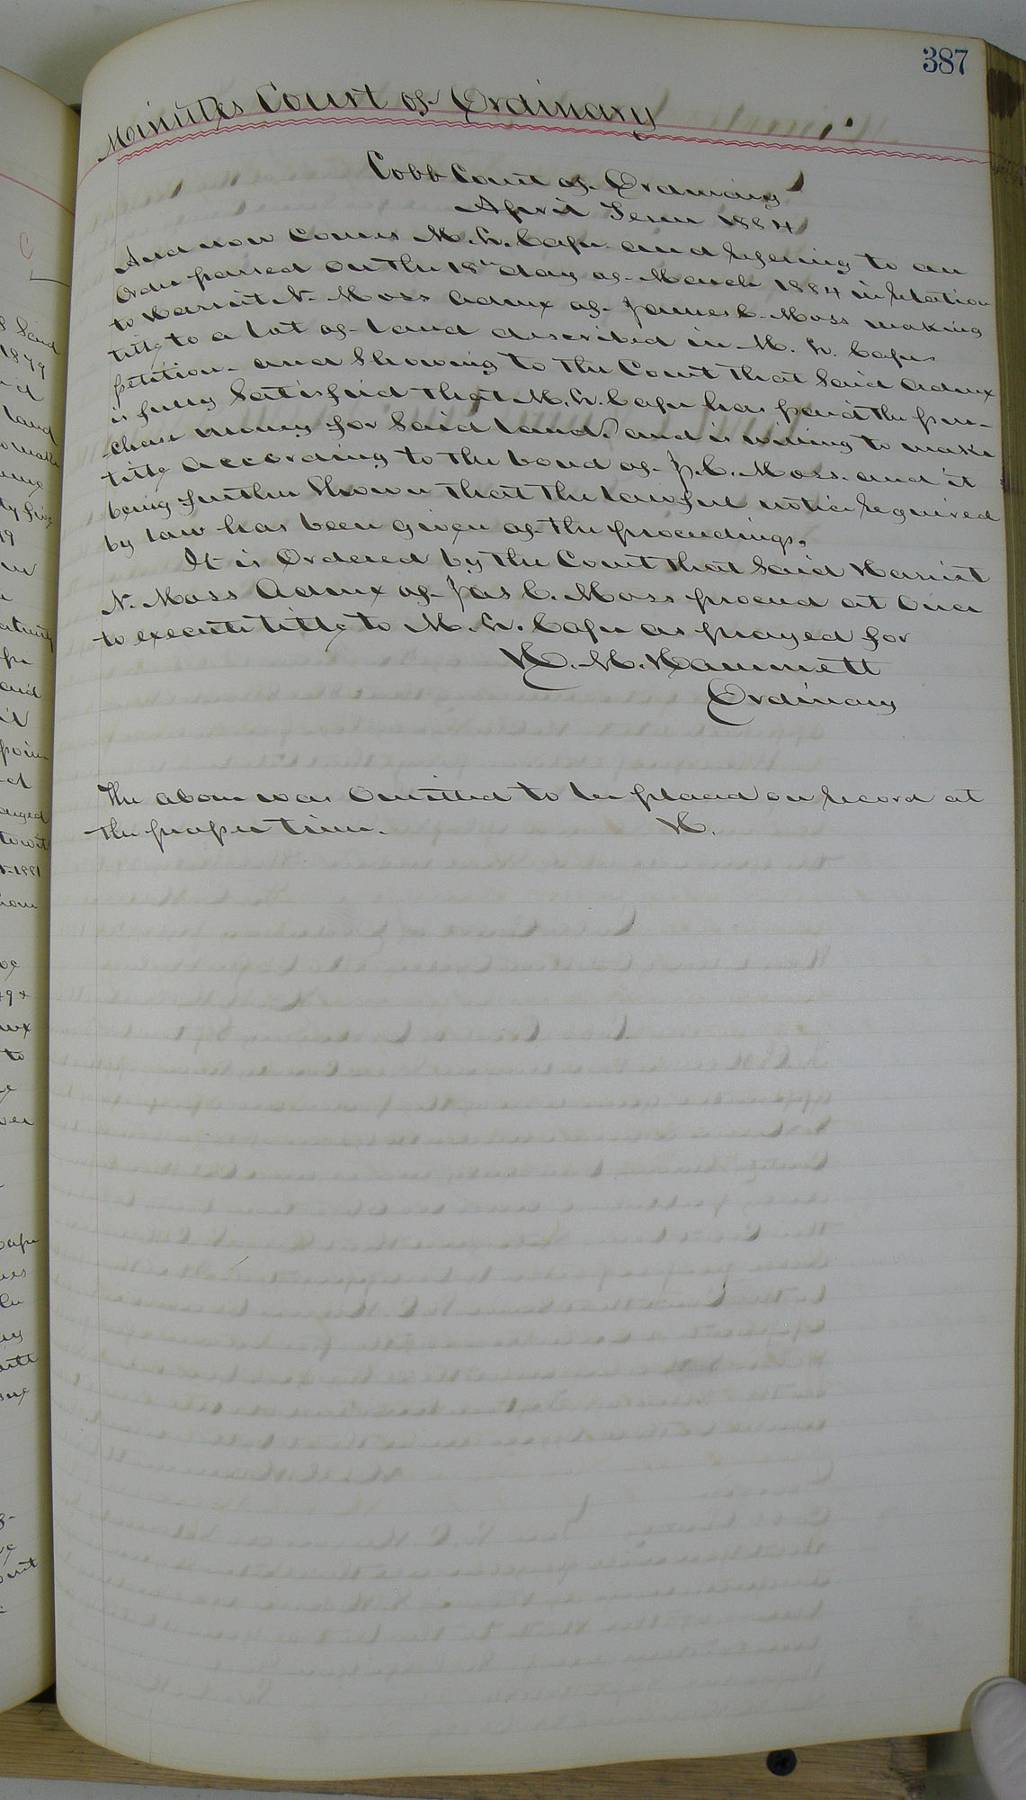 387
Minutes Court of Ordinary
Cobb Court of Ordinary
April Term 1884
And now comes M. L. Capu and refering to an
Order passed on the 18th day of March 1884 in relation
to Harriet N. Moss admx of James C. Moss making
title to a lot of land described in M. L. Capus
petition - and showing to the Court that said admx
is fully satisfied that M. L. Capu has paid the pur-
-chase money for said land, and is willing to make
title according to the bond of J. C. Moss. and it
being further shown that the lawful notice required
by law has been given of the proceedings.
It is Ordered by the Court that said Harriet
N. Moss Admx of Jas C. Moss proceed at once
to execute title to M. L. Capu as prayed for
H. M. Hammett
Ordinary
The above was omitted to be placed on record at
the proper time. H.